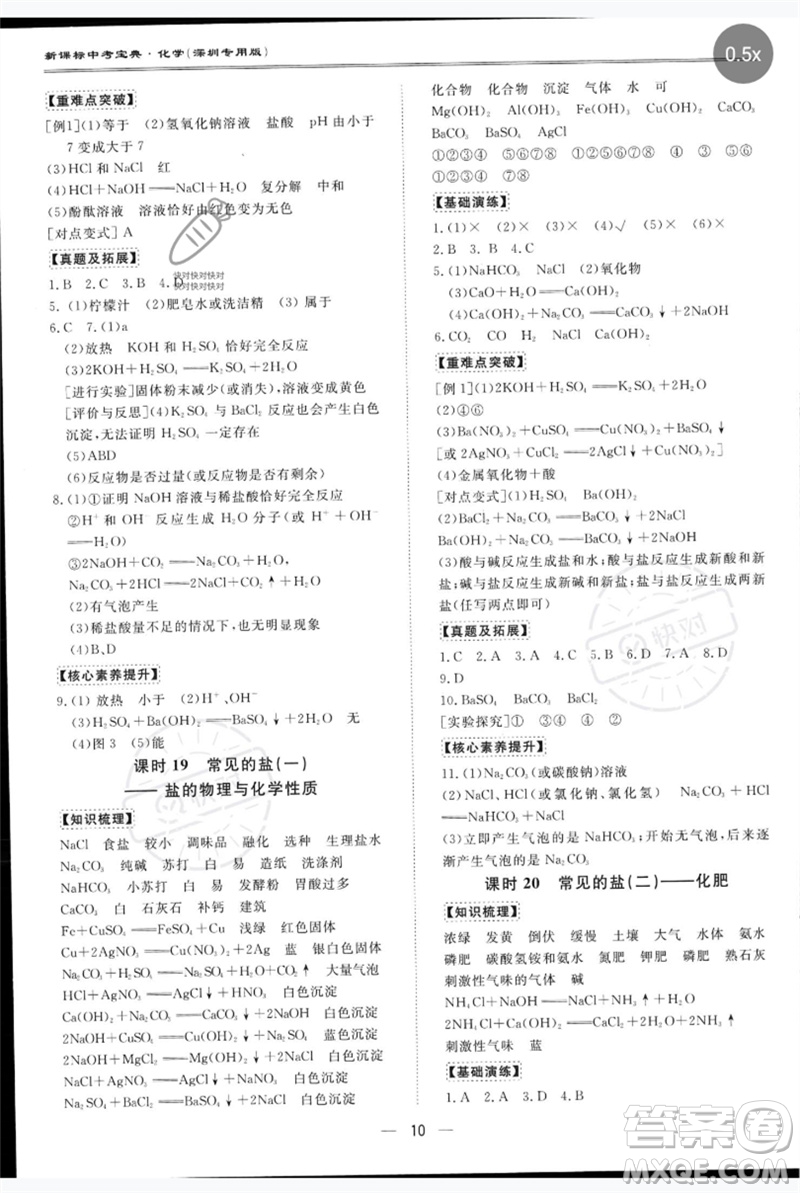 新课标中考宝典·化学(深圳专用版)
0.5x
【重难点突破】
[例1](1)等于 (2)氢氧化钠溶液 盐酸 pH由小于
7变成大于7
(3)HCl和NaCl 红
(4)HCl+NaOH══NaCl+H₂O 复分解 中和
(5)酚酞溶液 溶液恰好由红色变为无色
[对点变式]A
【真题及拓展】
1.B 2.C 3.B 4.D
快对快对快对
快对快对快对
5.(1)柠檬汁 (2)肥皂水或洗洁精 (3)属于
6.C 7.(1)a
(2)放热 KOH和H₂SO₄恰好完全反应
(3)2KOH+H₂SO₄══K₂SO₄+2H₂O
[进行实验]固体粉末减少(或消失),溶液变成黄色
[评价与反思](4)K₂SO₄与BaCl₂反应也会产生白色
沉淀,无法证明H₂SO₄一定存在
(5)ABD
(6)反应物是否过量(或反应物是否有剩余)
8.(1)①证明NaOH溶液与稀盐酸恰好完全反应
②H⁺和OH⁻反应生成H₂O分子(或H⁺+OH⁻
══H₂O)
③2NaOH+CO₂══Na₂CO₃+H₂O、
Na₂CO₃+2HCl══2NaCl+H₂O+CO₂↑
(2)有气泡产生
(3)稀盐酸量不足的情况下,也无气泡出现
(4)B、D
【核心素养提升】
9.(1)放热 小于 (2)H⁺、OH⁻
(3)H₂SO₄+Ba(OH)₂══BaSO₄↓+2H₂O 无
(4)图3 (5)能
课时19 常见的盐(一)
——盐的物理与化学性质
【知识梳理】
NaCl 食盐 较小 调味品 融化 选种 生理盐水
Na₂CO₃ 纯碱 苏打 白 造纸 洗涤剂
NaHCO₃ 小苏打 白 发酵粉 胃酸过多
CaCO₃ 白 石灰石 补钙 建筑
Fe+CuSO₄══FeSO₄+Cu 浅绿 红色固体
Cu+2AgNO₃══Cu(NO₃)₂+2Ag 蓝 银白色固体
Na₂CO₃+2HCl══2NaCl+H₂O+CO₂↑ 大量气泡
HCl+AgNO₃══AgCl↓+HNO₃ 白色沉淀
Ca(OH)₂+Na₂CO₃══CaCO₃↓+2NaOH 白色沉淀
2NaOH+CuSO₄══Cu(OH)₂↓+Na₂SO₄ 蓝色沉淀
2NaOH+MgCl₂══Mg(OH)₂↓+2NaCl 白色沉淀
NaCl+AgNO₃══AgCl↓+NaNO₃ 白色沉淀
Na₂SO₄+BaCl₂══BaSO₄↓+2NaCl 白色沉淀
化合物 化合物 沉淀 气体 水 可
Mg(OH)₂ Al(OH)₃ Fe(OH)₃ Cu(OH)₂ CaCO₃
BaCO₃ BaSO₄ AgCl
①②③④ ⑤⑥⑦⑧ ①②③④⑤⑥
①②③④⑤⑥ ⑦⑧
【基础演练】
1.(1)× (2)× (3)× (4)√ (5)× (6)×
2.B 3.B 4.C
5.(1)NaHCO₃ NaCl (2)氧化物
(3)CaO+H₂O══Ca(OH)₂
(4)Ca(OH)₂+Na₂CO₃══CaCO₃↓+2NaOH
6.CO₂ CO H₂ NaCl Na₂CO₃
【重难点突破】
[例1](1)2KOH+H₂SO₄══K₂SO₄+2H₂O
(2)④⑥
(3)Ba(NO₃)₂+CuSO₄══Cu(NO₃)₂+BaSO₄↓
[或2AgNO₃+CuCl₂══Cu(NO₃)₂+2AgCl↓]
(4)金属氧化物+酸
[对点变式](1)NaOH
(2)BaCl₂+Na₂CO₃══BaCO₃↓+2NaCl
(3)酸与碱反应生成盐和水;酸与盐反应生成新酸和新
盐;碱与盐反应生成新碱和新盐;盐与盐反应生成两新
盐(任写两点即可)
【真题及拓展】
1.C 2.C 3.A 4.A 5.D 6.B 7.A 8.D
9.D
10.BaSO₄ BaCO₃ BaCl₂
[实验探究]① ③④ ①②④
【核心素养提升】
11.(1)Na₂CO₃(或碳酸钠)溶液
(2)NaCl、HCl(或氯化钠、氯化氢) Na₂CO₃+HCl
══NaHCO₃+NaCl
(3)立即产生气泡的是NaHCO₃;开始无气泡,后来逐
渐产生气泡的是Na₂CO₃
课时20 常见的盐(二)——化肥
【知识梳理】
浓绿 发黄 倒伏 缓慢 土壤 大气 水体 氨水
磷肥 碳酸氢铵和氨水 氮肥 钾肥 磷肥 熟石灰
刺激性气味的气体 碱
NH₄Cl+NaOH══NaCl+NH₃↑+H₂O
2NH₄Cl+Ca(OH)₂══CaCl₂+2NH₃↑+2H₂O
刺激性气味 蓝
【基础演练】
1.A 2.A 3.D 4.B
快对
10
答案圈
MXQE.COM